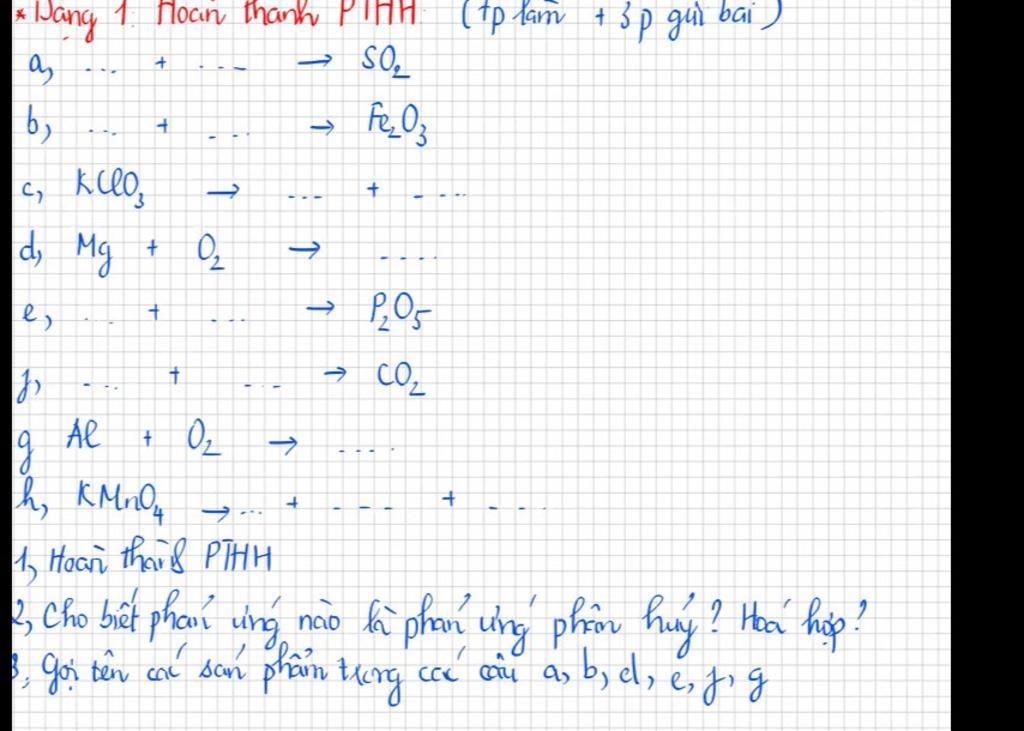 * Dạng 1: Hoàn thành PTHH (7p làm + 3p gửi bài)
a, ... + .... → SO₂
b, ... + ... → Fe₂O₃
c, KClO₃ → ... + ....
d, Mg + O₂ → ....
e, ... + ... → P₂O₅
f, ... + ... → CO₂
g Al + O₂ → ....
h, KMnO₄ → ... + ... + ...
1, Hoàn thành PTHH
2, Cho biết phản ứng nào là phản ứng phân huỷ? Hoá hợp?
3, Gọi tên các sản phẩm trong các câu a, b, d, e, f, g